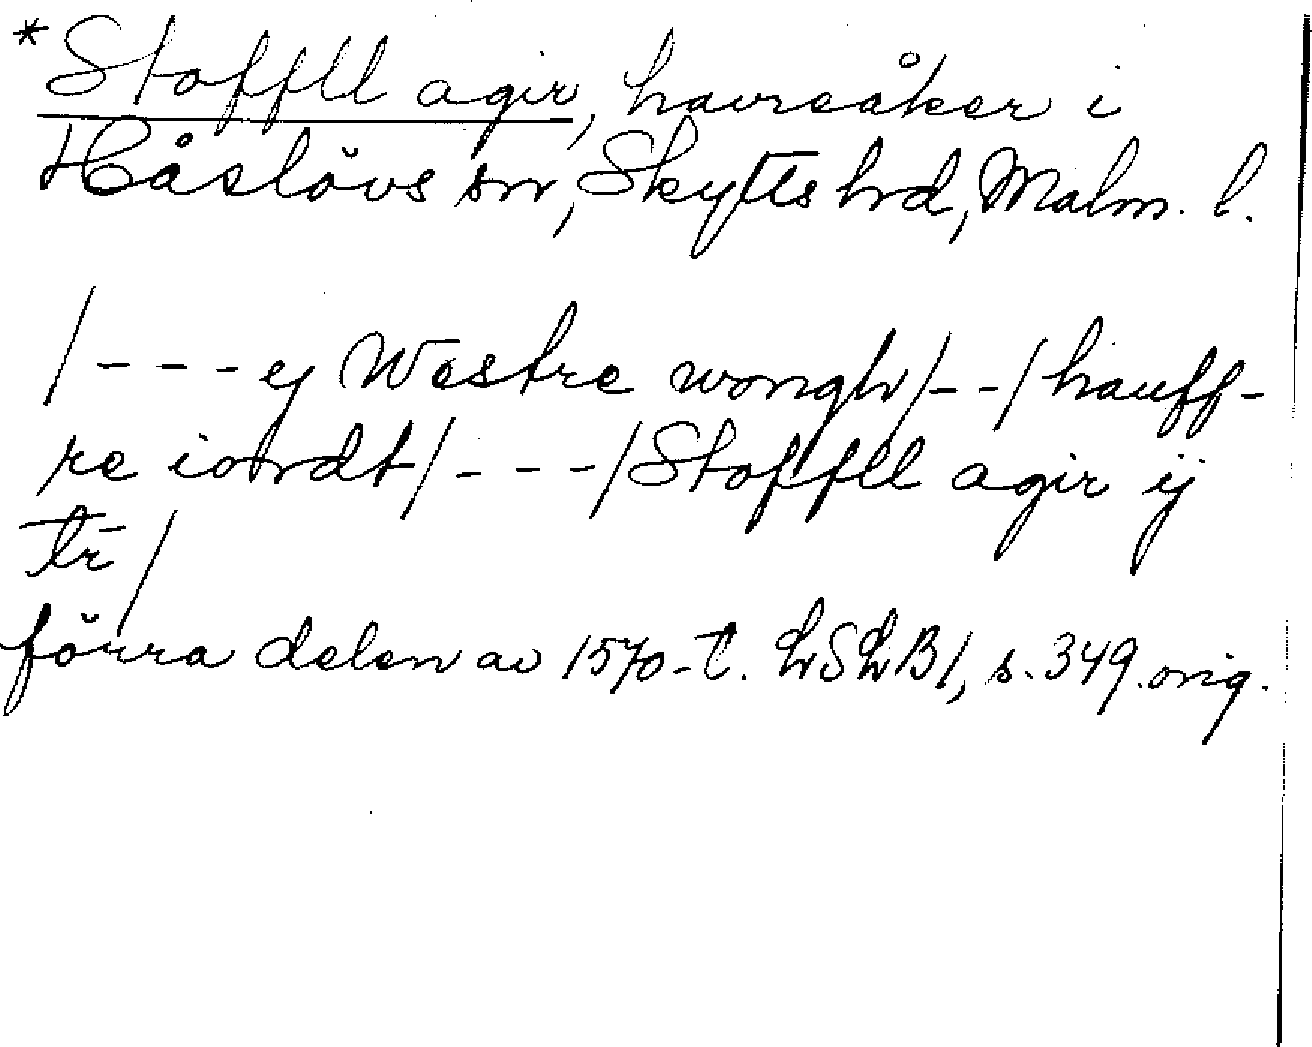 *Stoffll agir, havreåker i
Håslövs sn, Skytts hd, Malm. l.
/--- ej Westre wongh/--/hauff-
re iordt/---/Stoffll agir ij
tr̄/
förra delen av 1570-t. LSLB1, s. 349. orig.